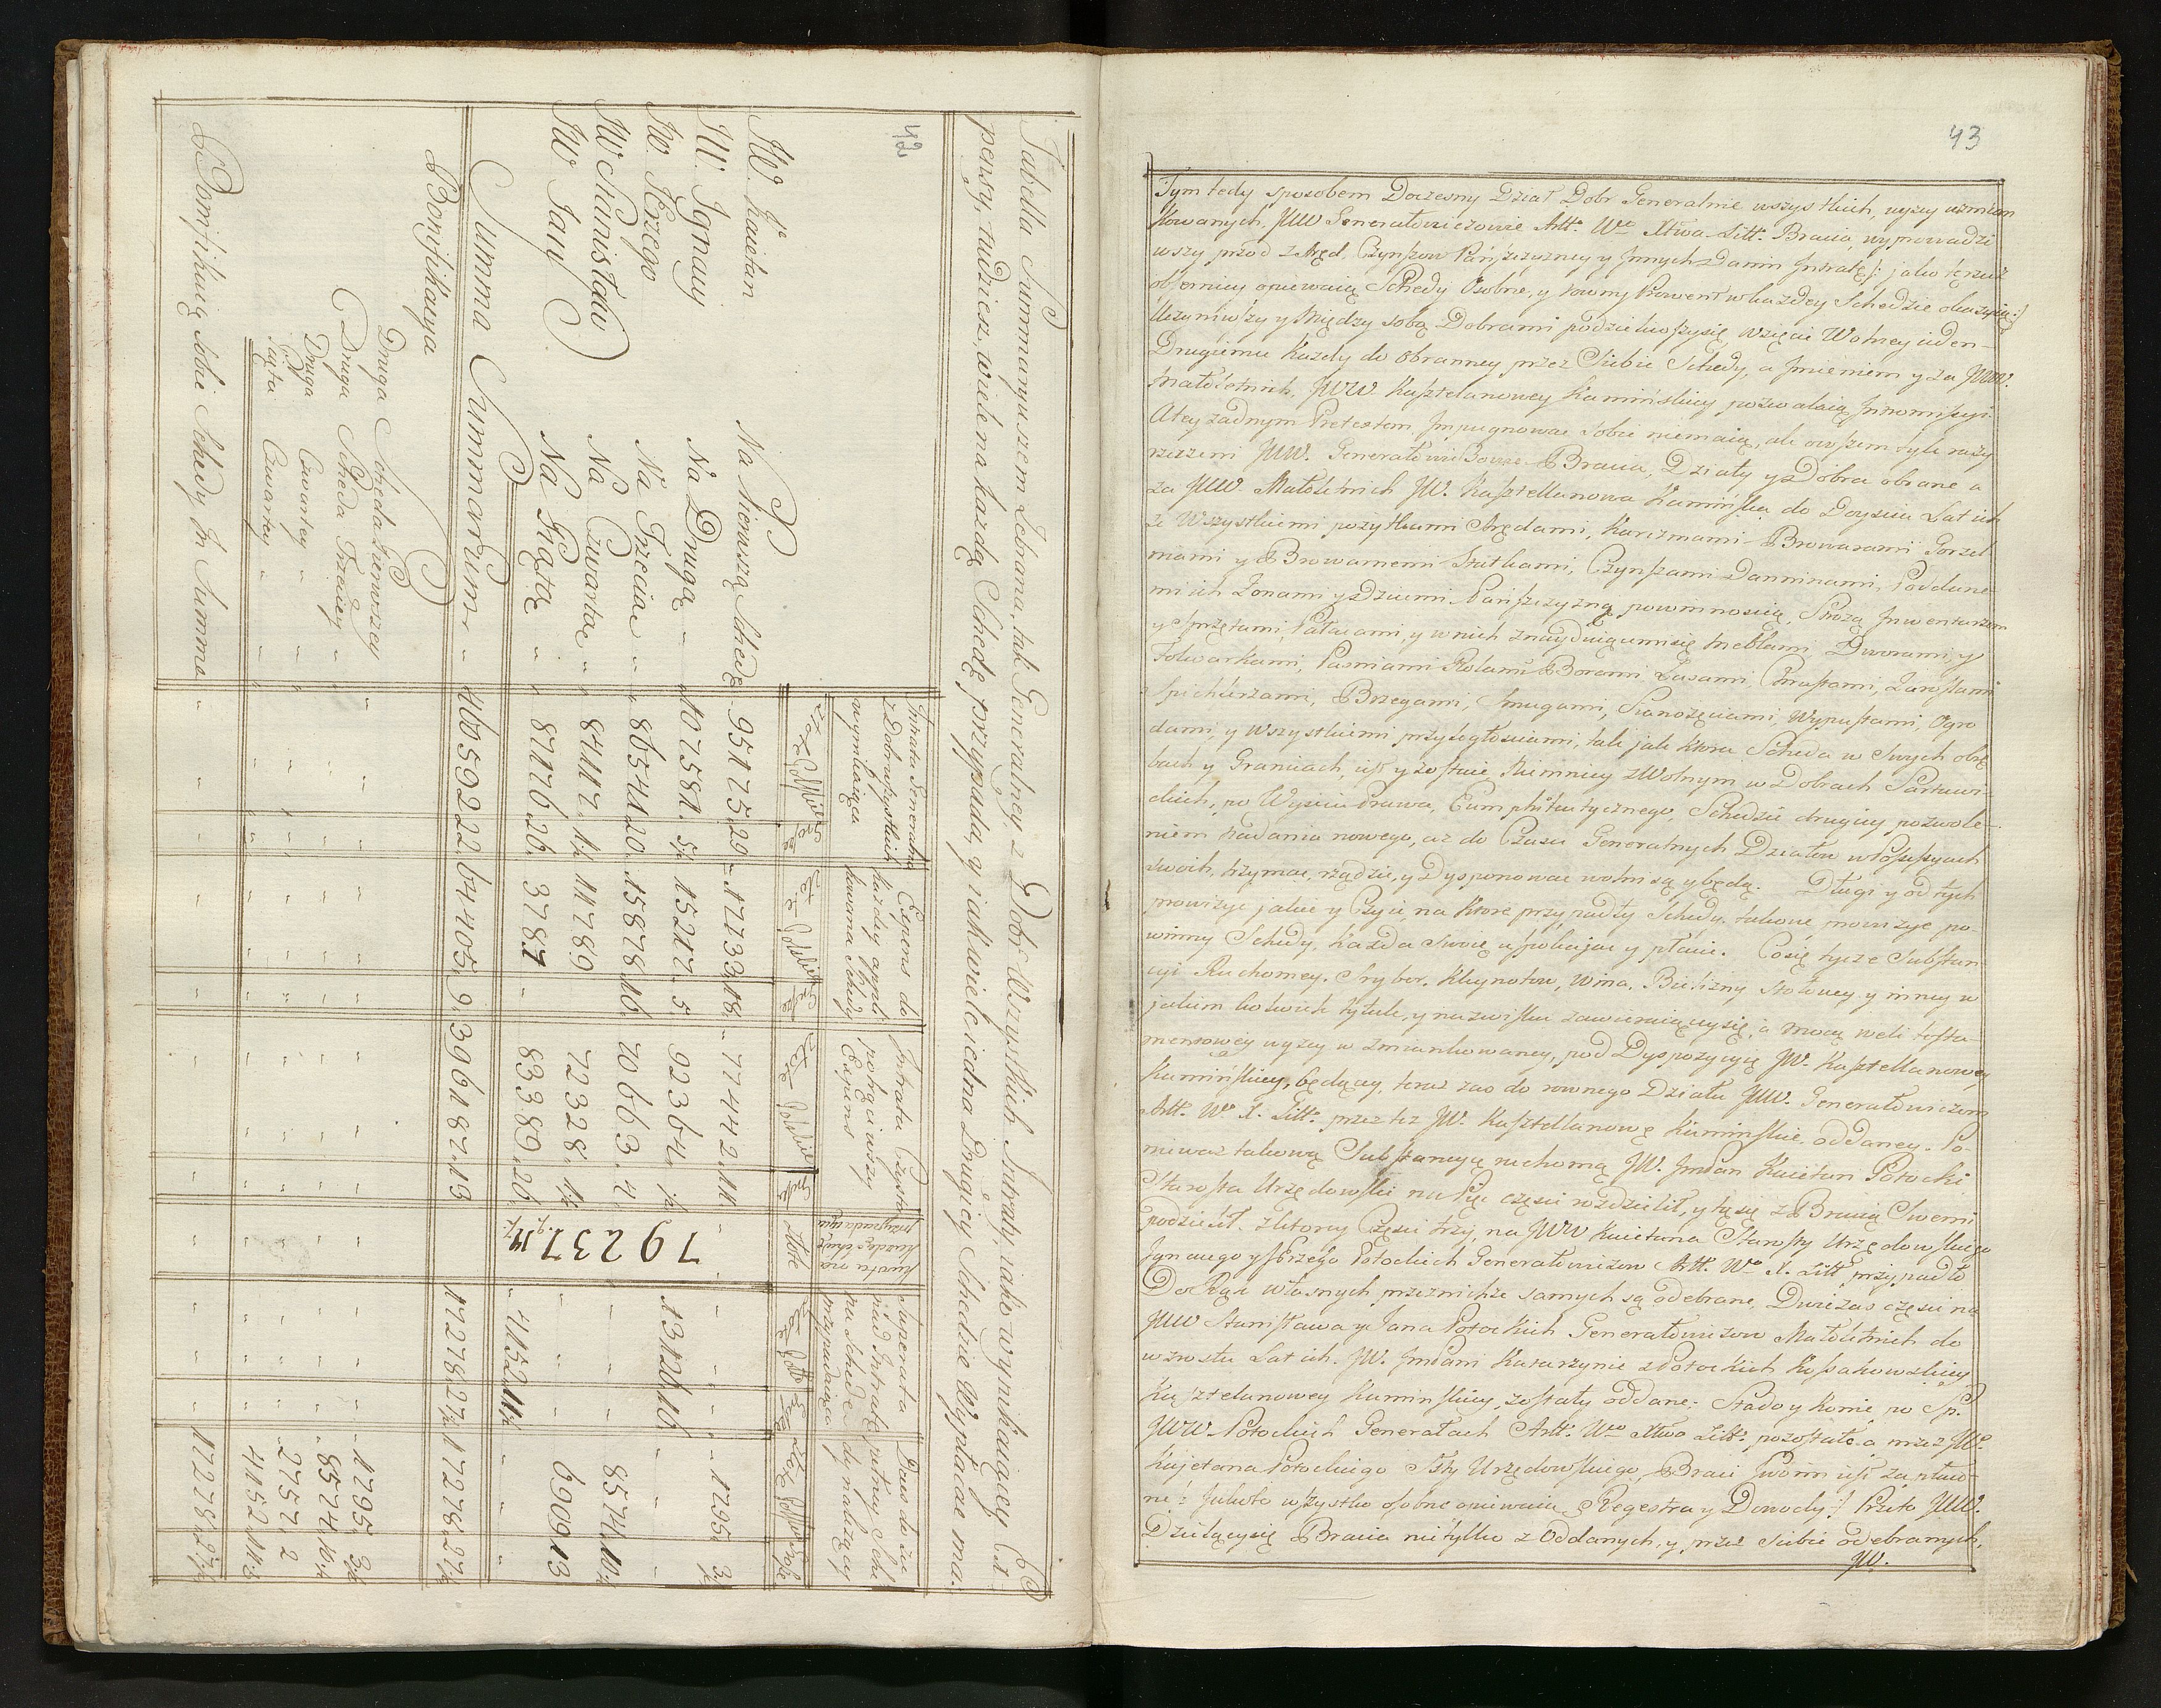 42
Tabella Summaryuszem Zebrana, tak Generalney, z Dobr Wszystkich Intraty, iako wynikaiącey Ex-
pensy, tudziesz, wiele na kazdą Schedę przypada, y iak wiele iedna Drugiey Schedzie Wypłacac ma.
Intrata Generalna z Dobr wszystkich wynikaiąca
Expens do kazdey appli kowana Schedy
Intrata Czysta potrąciwszy Expens
Kwota na kazdą Schedę przypadaiąca
Superata nad Intratę na Schedę przypadaiąca
Złote Polskie grosze
JW. Kaietan Na Pierwszą Schedę 95175 29 17733 18 77442 11 " " 1795 3
JW. Ignacy Na Drugą " 107581 5 15217 5 92364 13126 16 " "
JW. Jerzego Na Trzecia " 86541 20 15878 16 70663 4 " " 8574 10
JW Stanisław Na Czwarta " 84117 11789 72328 " " 6909 13
JW Jan Na Piąta " 87176 26 3787 " 83389 26 4152 11 " "
79237 14
Summa Summarum " 460592 22 64405 9 396187 13 17278 27 17278 27
Bonifikacya
Druga Scheda Pierwszey " 1795 3
Druga Scheda Trzeciey " 8574 10
Druga Czwartey " 2757 2
Piąta Czwartey " 4152 11
Bonifikuią sobie Schedy In Summa " 17278 27
43
Tym tedy sposobem Doczesny Dział Dobr Generalnie wszystkich, wyzey wzmian
kowanych, JWW Generałowiczowie Artt. Wo Xtwa Litt. Bracia, wyprowadzi
wszy przod z Aręd, Czynszow Pańszczyzney y Innych Danin Intratę /: jako tęrzecz
obserniey opiewaią Schedy Osobne, y rowny Prowent w kazdey Schedzie okazuią :/
Uczyniwszy y Między sobą Dobrami podzieliwszysię, wzięcie Wolney ieden
Drugiemu Kazdy do obranney przez Siebie Schedy, a Imieniem y za JWW.
Małoletnich, JWW Kasztelanowey Kamińskiey pozwalaią Intromissyi.
A tey zadnym Pretextem Impugnowac sobie niemaią, ale owszem tyle razy
rzeczeni JWW. Generałowiczowie Bracia, Działy y Dobra obrane a
za JWW Małoletnich JW. Kasztellanowa Kamińska do Doyscia Lat ich
ze Wszystkiemi pozytkami Arędami, Karczmami Browarami Gorzel
niami y Browarnemi Statkami, Czynszami Danninami, Poddane
mi ich Zonami y Dziecmi Pańszczyzną powinnoscią, Strozą Inwentarzem
y Sprzętami, Pałacami, y w nich znayduiącemisię Meblami Dworami, y
Folwarkami, Pasniami Rolami Borami Lasami, Chrustami, Zarostami
Spichlerzami, Brzegami, Smugami, Sianozęciami, Wypustami, Ogro
dami, y Wszystkiemi przyległosciami, tak jak ktora Scheda w Swych obrę
bach y Graniciach, iest y zostaie, Niemniey z Wolnym w Dobrach Sartawi-
ckich, po Wysciu Prawa, Eumphiteutycznego, Schedzie drugiey pozwole-
niem nadania nowego, az do Czasu Generalnych Działow w Possessyach
swoich, trzymac, rządzic, y Dysponowac wolni są y będą. Długi y od tych
prowizye jakie y Czyie, na Ktore przypadły Schedy, takowe prowizye po-
winny Schedy, kazda Swoię uspokajac y płacic. Cosię tycze Substan
cyi Ruchomey. Srybor, Kleynotow, Wina, Bielizny Stołowey y inney w
jakim kolwiek tytule, y nazwisku zawieraiącysię, a mocą weli testa-
mentowey wyzey w zmiankowaney, pod Dyspozycyię JW. Kasztellanowey
Kamińskiey, będącey, teraz zas do rownego Działu JWW. Generałowiczom
Artt. Wo X. Litt. przez tez JW. Kasztellanowę Kamińskie oddaney. Po-
niewaz takową Substancyię ruchomą JW. Imc Pan Kaietan Potocki
Starosta Urzędowski na Pięc części rozdzielił, y tęsię z Bracią Swemi
podzielił. z ktorey Części trzy, na JWW Kaietana Starosty Urzędowskiego
Ignacego y Jerzego Potockich Generałowiczow Artt. Wo X. Litt przypadło
Do Rąk własnych przeznichze samych są odebrane, Dwie zas części na
JWW Stanisława y Jana Potockich Generałowiczow Małoletnich do
wzrostu Lat ich. JW. Imc Pani Katarzynie z Potockich Kossakowskiey
Kasztelanowey Kaminskiey, zostały oddane. Stado y Konie po Sp.
JWW. Potockich Generałach Artt. Wo Xtwa Litt. pozostałe a przez JW.
Kajetana Potockiego Stty Urzędowskiego, Braci Swoim iest zapłaco-
ne /: Jakoto wszystko osobne opiewaia Regestra y Dowody :/ Przeto JWW.
Dzielącysię Bracia nietylko z Oddanych, y, przez siebie odebranych,
JW.